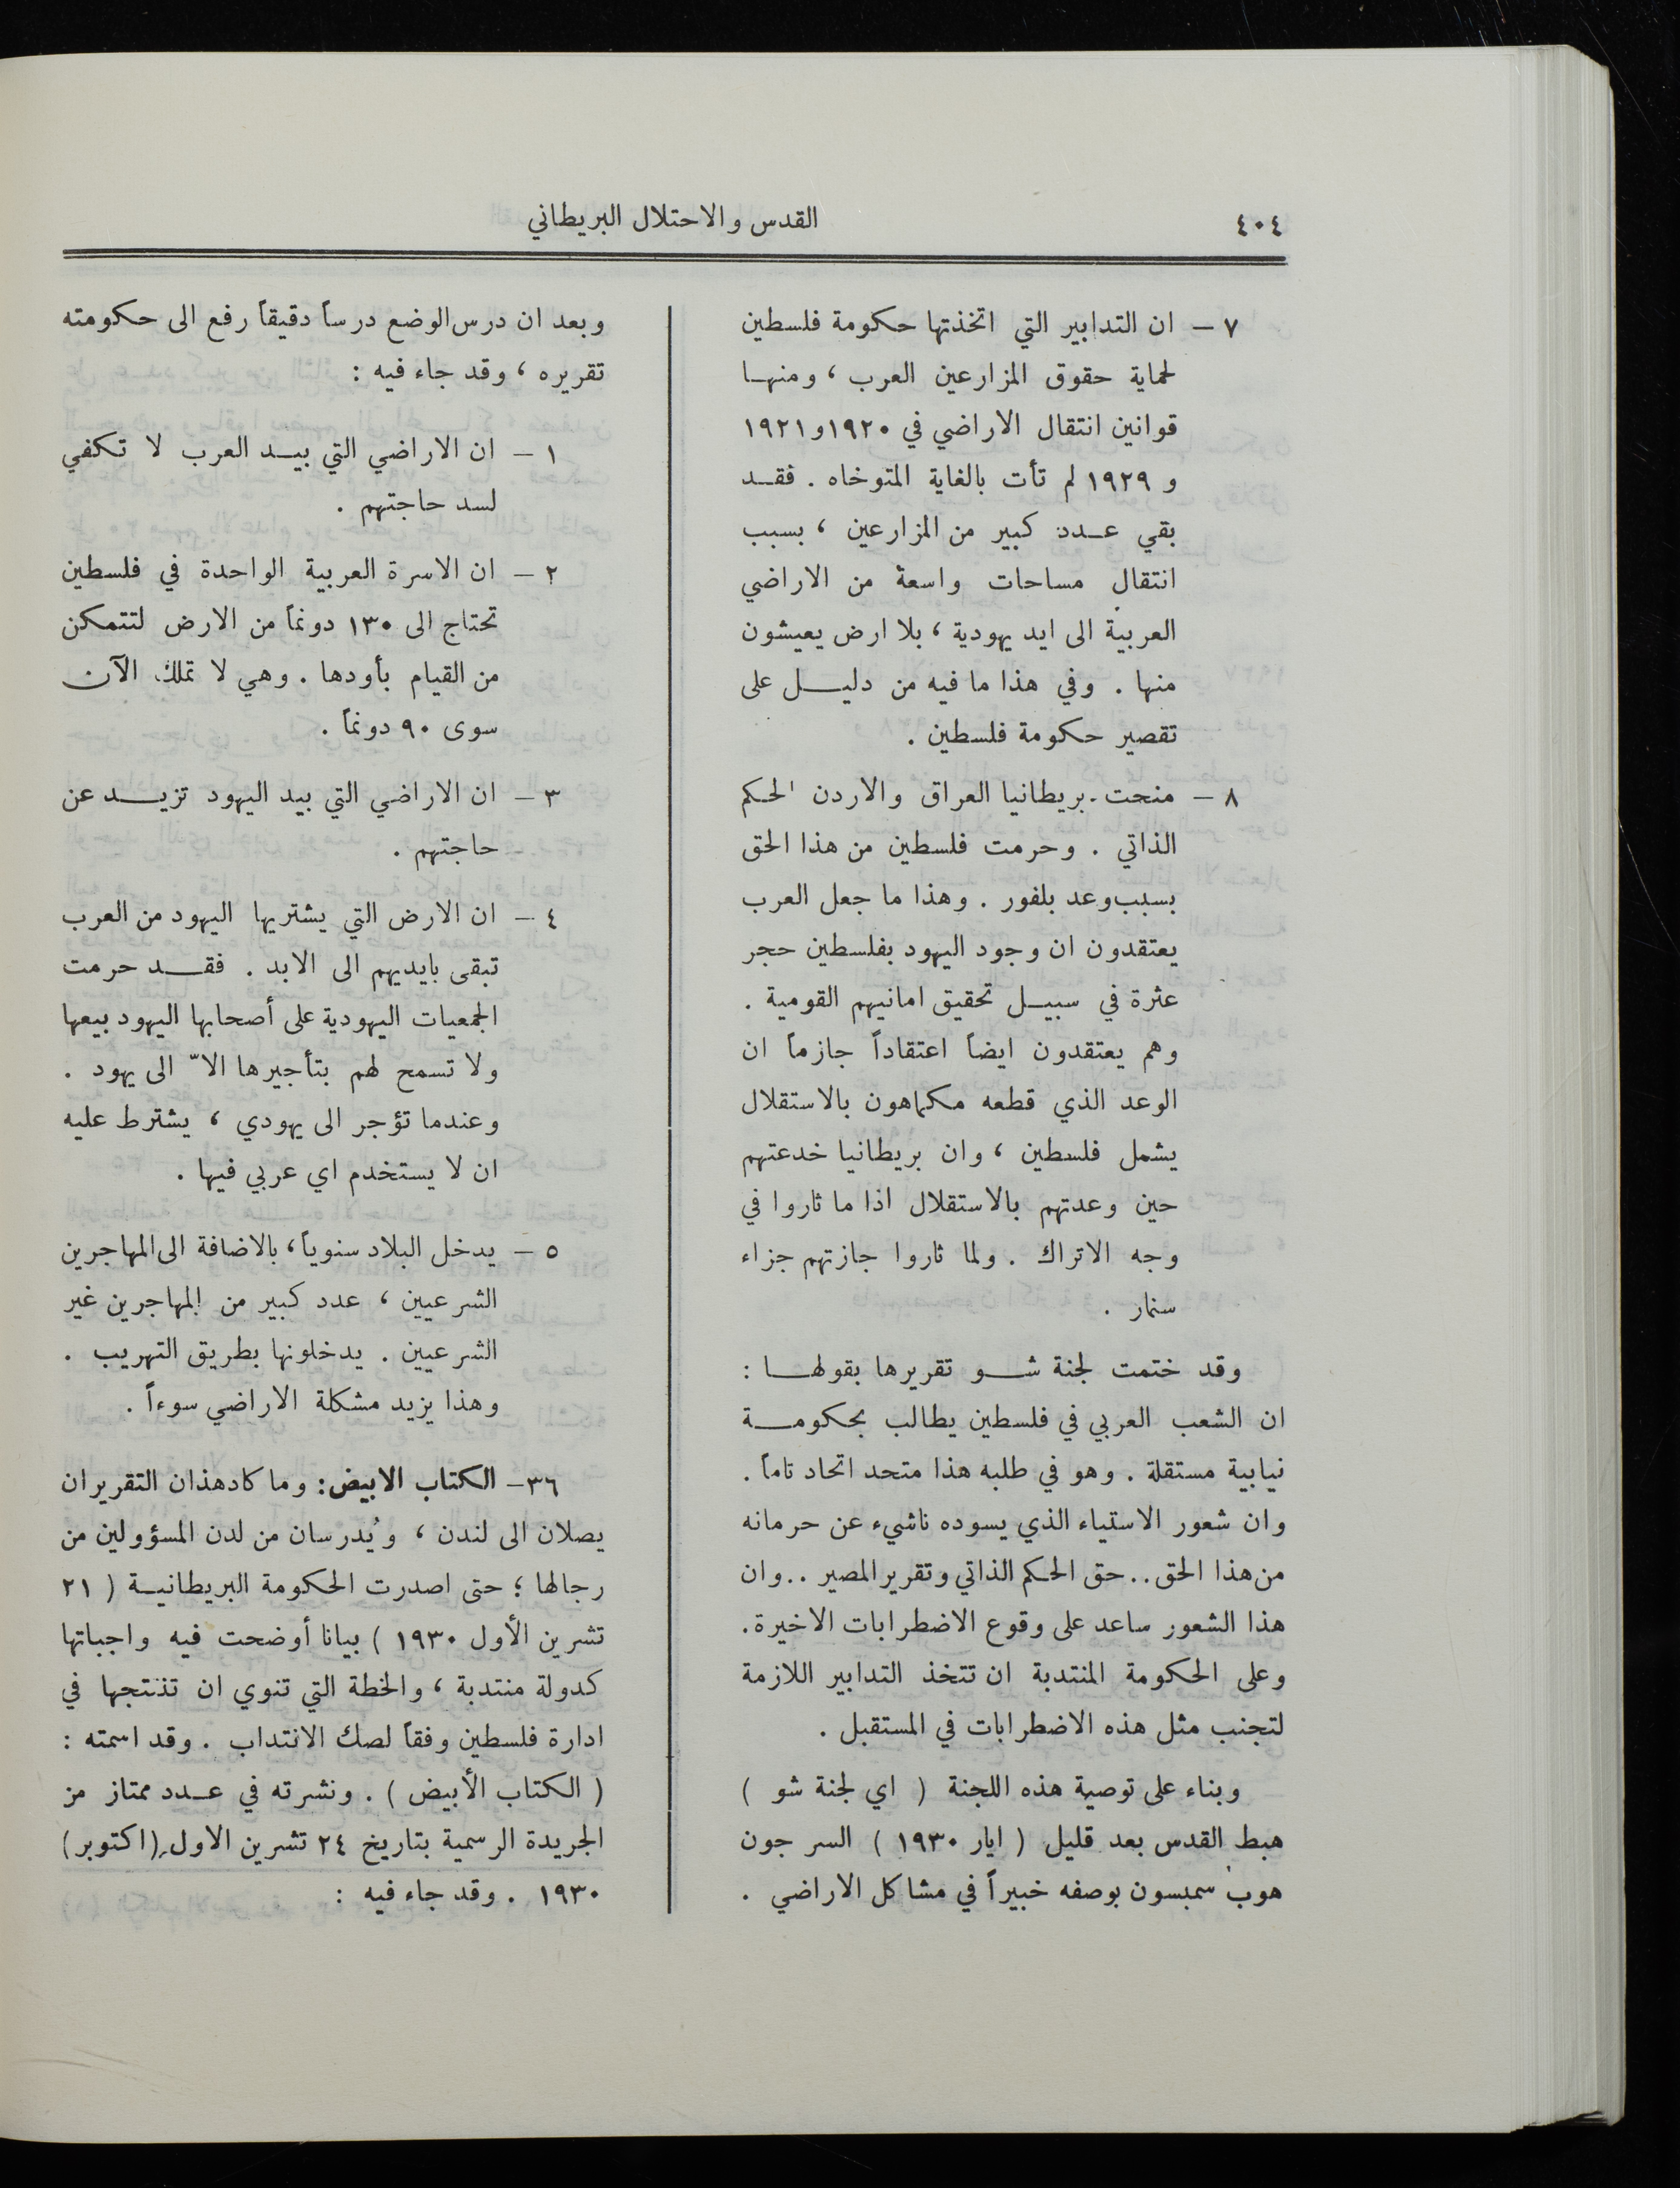 ٤٠٤
القدس والاحتلال البريطاني
٧ – ان التدابير التي اتخذتها حكومة فلسطين
لحماية حقوق المزارعين العرب ، ومنهـا
قوانين انتقال الاراضي في ١٩٢٠و١٩٢١
و ١٩٢٩ لم تأت بالغاية المتوخاه . فقـد
بقي عـدد كبير من المزارعين ، بسبب
انتقال مساحات واسعة من الاراضي
العربية الى ايد يهودية ، بلا ارض يعيشون
منها . وفي هذا ما فيه من دليـل على
تقصير حكومة فلسطين .
٨ – منحت بريطانيا العراق والاردن الحكم
الذاتي . وحرمت فلسطين من هذا الحق
بسبب وعد بلفور . وهذا ما جعل العرب
يعتقدون ان وجود اليهود بفلسطين حجر
عثرة في سبيـل تحقيق امانيهم القومية .
وهم يعتقدون ايضاً اعتقاداً جازماً ان
الوعد الذي قطعه مكماهون بالاستقلال
يشمل فلسطين ، وان بريطانيا خدعتهم
حين وعدتهم بالاستقلال اذا ما ثاروا في
وجه الاتراك . ولما ثاروا جازتهم جزاء
سنمار .
وقد ختمت لجنة شـو تقريرها بقولهـا :
ان الشعب العربي في فلسطين يطالب بحكومـة
نيابية مستقلة . وهو في طلبه هذا متحد اتحاد تاماً .
وان شعور الاستياء الذي يسوده ناشيء عن حرمانه
من هذا الحق .. حق الحكم الذاتي وتقرير المصير .. وان
هذا الشعور ساعد على وقوع الاضطرابات الاخيرة .
وعلى الحكومة المنتدبة ان تتخذ التدابير اللازمة
لتجنب مثل هذه الاضطرابات في المستقبل .
وبناء على توصية هذه اللجنة ( اي لجنة شو )
هبط القدس بعد قليل ( ايار ١٩٣٠ ) السر جون
هوب سمبسون بوصفه خبيراً في مشاكل الاراضي .
وبعد ان درس الوضع درساً دقيقاً رفع الى حكومته
تقريره ، وقد جاء فيه :
١ – ان الاراضي التي بيـد العرب لا تكفي
لسد حاجتهم .
٢ – ان الاسرة العربية الواحدة في فلسطين
تحتاج الى ١٣٠ دونماً من الارض لتتمكن
من القيام بأودها . وهي لا تملك الآن
سوى ٩٠ دونماً .
٣ – ان الاراضي التي بيد اليهود تزيـد عن
حاجتهم .
٤ – ان الارض التي يشتريها اليهود من العرب
تبقى بايديهم الى الابد . فقـد حرمت
الجمعيات اليهودية على أصحابها اليهود بيعها
ولا تسمح لهم بتأجيرها الاّ الى يهود .
وعندما تؤجر الى يهودي ، يشترط عليه
ان لا يستخدم اي عربي فيها .
٥ – يدخل البلاد سنوياً ، بالاضافة الى المهاجرين
الشرعيين ، عدد كبير من المهاجرين غير
الشرعيين . يدخلونها بطريق التهريب .
وهذا يزيد مشكلة الاراضي سوءاً .
٣٦– الكتاب الابيض: وما كاد هذان التقريران
يصلان الى لندن ، ويُدرسان من لدن المسؤولين من
رجالها ؛ حتى اصدرت الحكومة البريطانيـة ( ٢١
تشرين الأول ١٩٣٠ ) بيانا أوضحت فيه واجباتها
كدولة منتدبة ، والخطة التي تنوي ان تنتجها في
ادارة فلسطين وفقاً لصك الانتداب . وقد اسمته :
( الكتاب الأبيض ) . ونشرته في عـدد ممتاز من
الجريدة الرسمية بتاريخ ٢٤ تشرين الاول (اكتوبر)
١٩٣٠ . وقد جاء فيه :